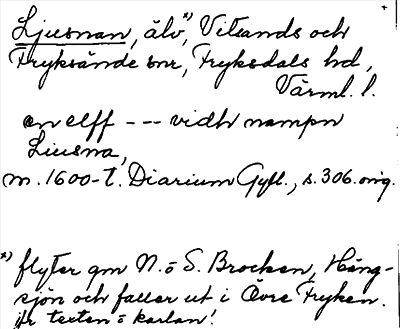 Ljusnan, älv*), Vitsands och
Fryksände snr, Fryksdals hd,
Värml. l.
en elff --- vidh nampn
Liusna,
m. 1600-t. Diarium Gyll., s. 306. orig.
*) flyter gm N. o S. Brocken, Häng-
sjön och faller ut i Övre Fryken.
Jfr texten o kartan!